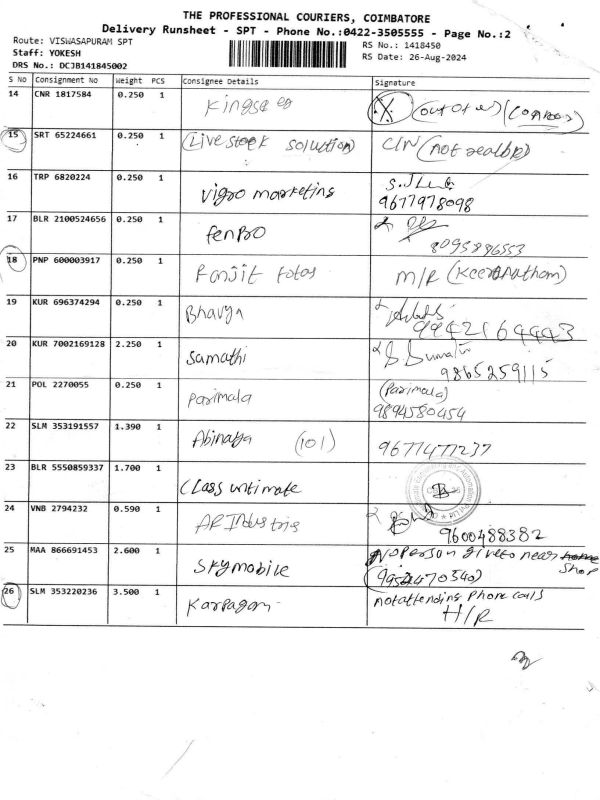 THE PROFESSIONAL COURIERS, COIMBATORE
Delivery Runsheet - SPT - Phone No.:0422-3505555 - Page No.:2
Route: VISWASAPURAM SPT
Staff: YOKESH
DRS No.: DCJB141845002
RS No.: 1418450
RS Date: 26-Aug-2024
S No Consignment No Weight PCS Consignee Details Signature
14 CNR 1817584 0.250 1 Kings
15 SRT 65224661 0.250 1 (Live stock solution) C/N (not
16 TRP 6820224 0.250 1 Vigro marketins
9677978098
17 BLR 2100524656 0.250 1 fenBro
8095886553
18 PNP 600003917 0.250 1 Ranjit totas M/R (Keeranatham)
19 KUR 696374294 0.250 1 Bhavya
9942164443
20 KUR 7002169128 2.250 1 Samathi
9865259115
21 POL 2270055 0.250 1 Parimala (Parimala)
9894580454
22 SLM 353191557 1.390 1 Abinaya (101) 9677477237
23 BLR 5550859337 1.700 1 Class untimate
24 VNB 2794232 0.590 1 AR Industris
9600488382
25 MAA 866691453 2.600 1 Skymobile No Person give to near shop
26 SLM 353220236 3.500 1 Karpagam not attending Phone calls
H/R